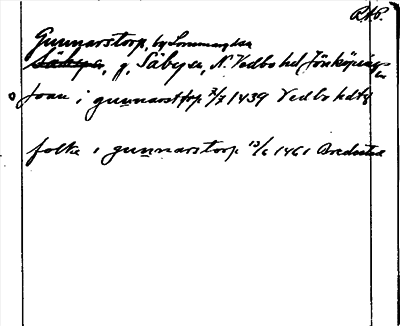 RAP.
Gunnarstorp, by Sommarydsa
Säbyn, g. Säbyn, N. Vedbo hd Jönköpings
ln
Joan i gunnarstorp 2/7 1439 Vedbo hdtg
folke i gunnarstorp 13/6 1461 Bredestad